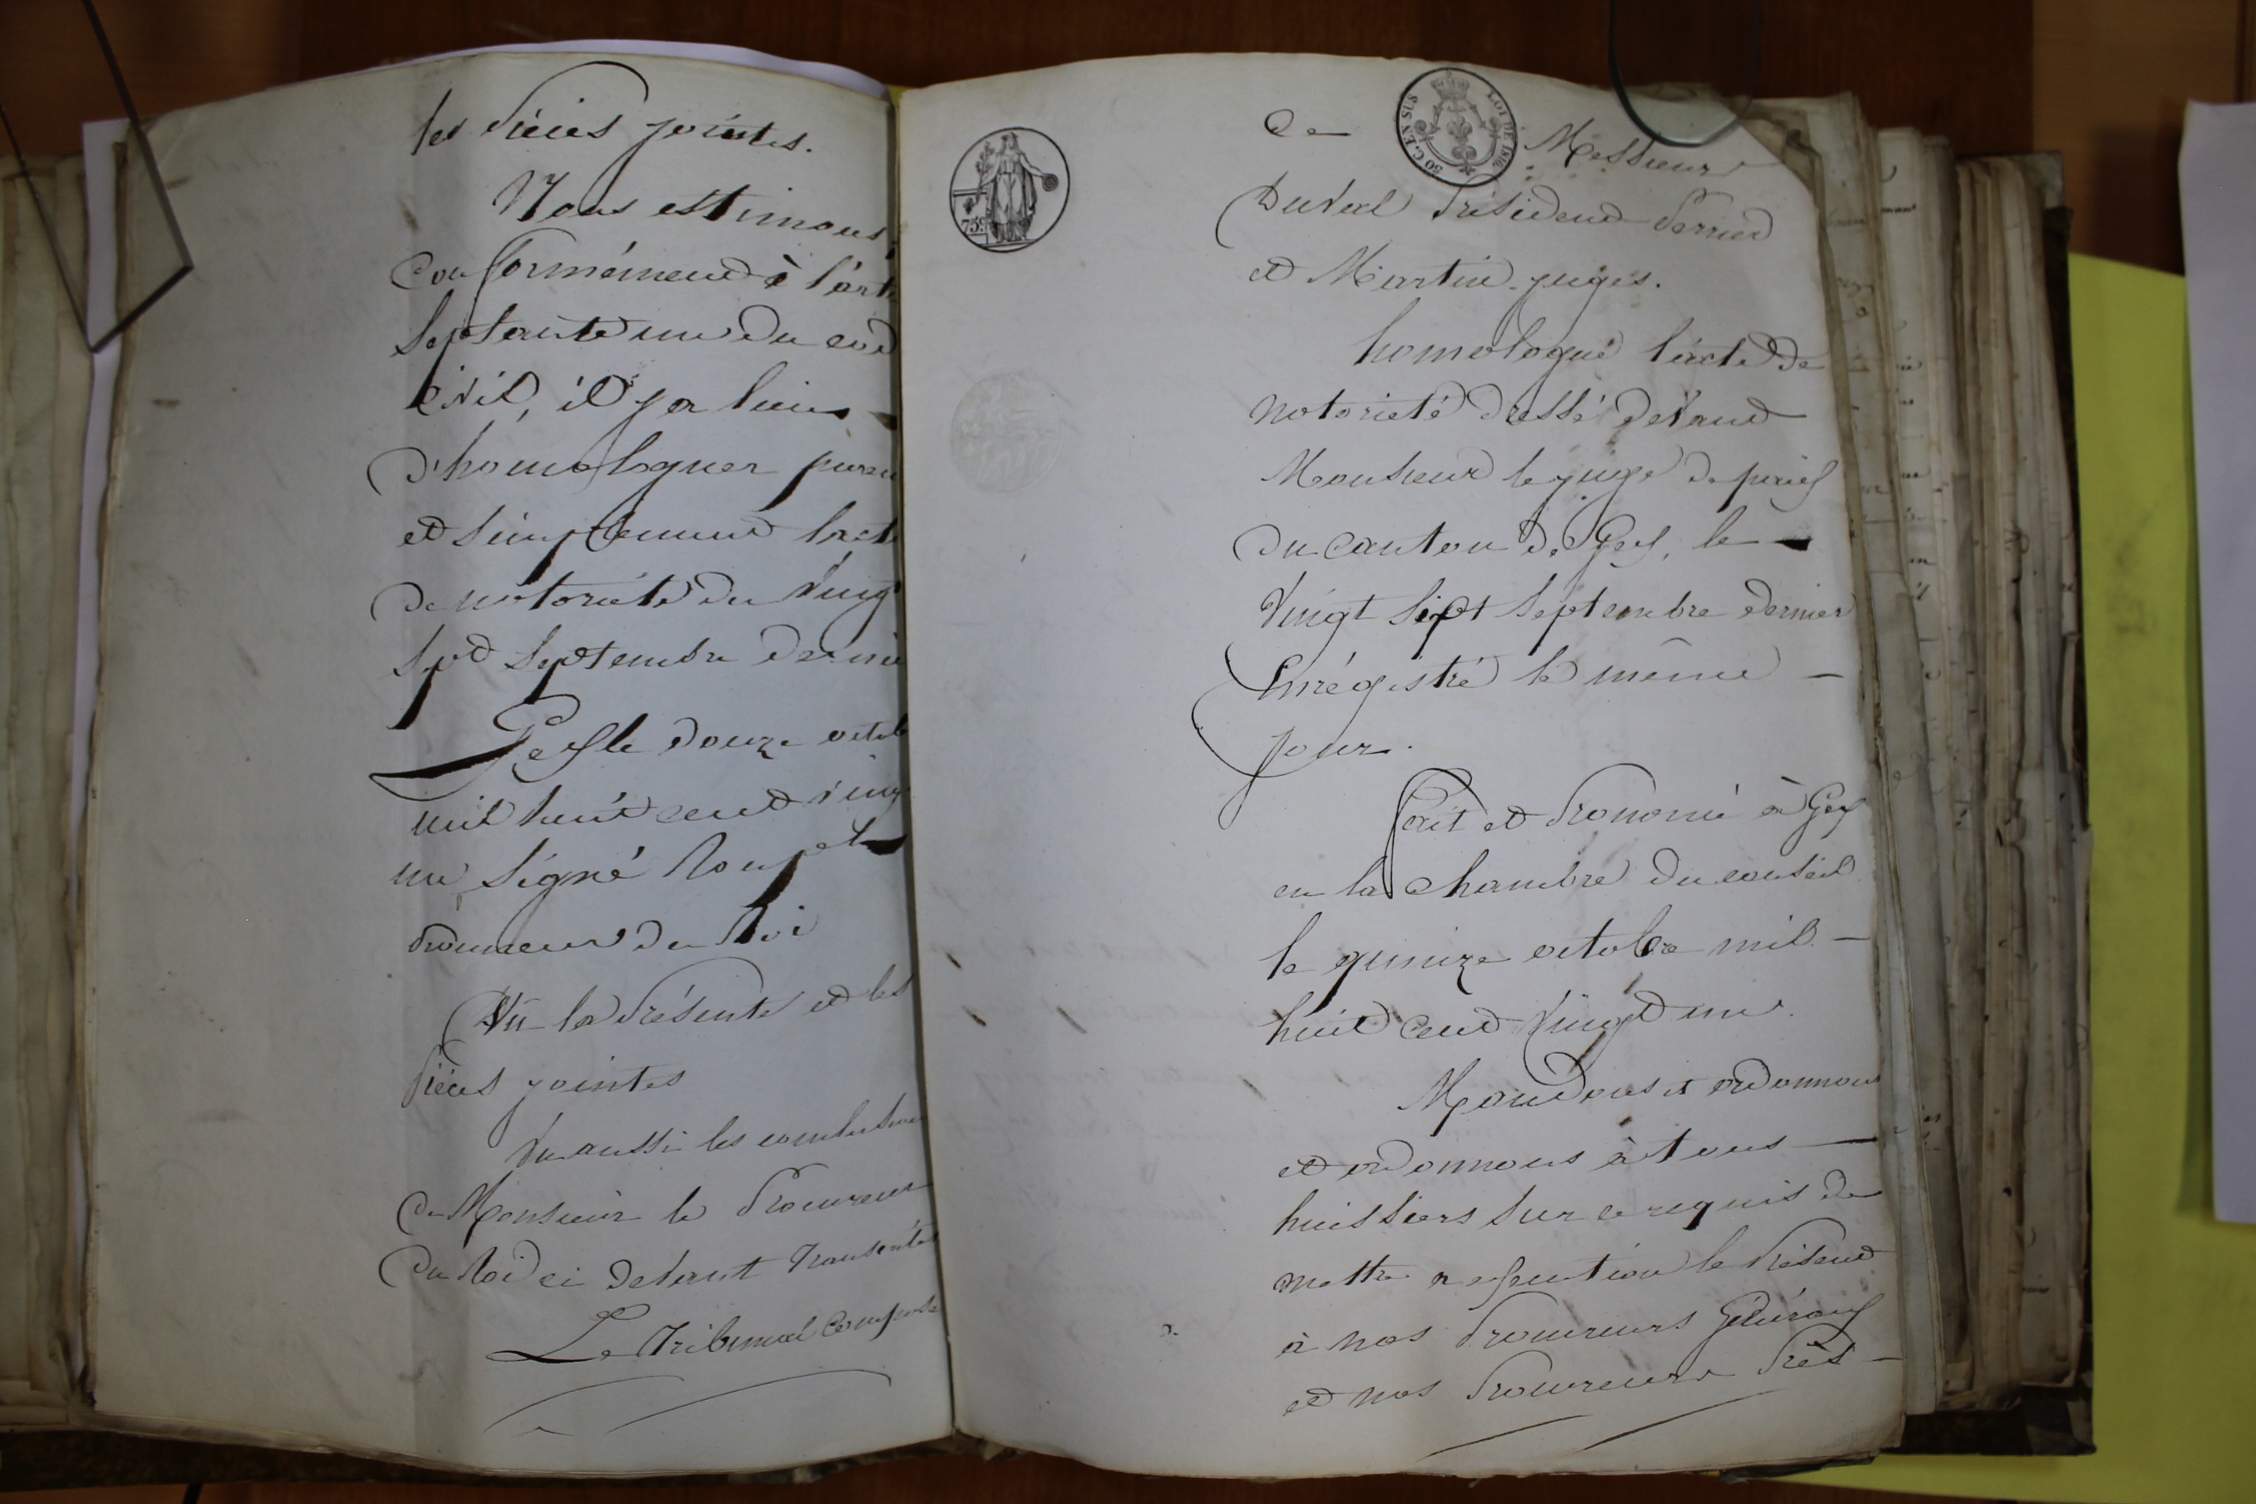 les pièces jointes.
Nous estimons,
conformément à l'arti
septante un du cod
civil, il y a lieu
d'homologuer pure
et simplement l'acte
de notoriété du vingt
sept septembre dernie
Gex le douze octob
mil huit cent ving
un signé Rouget
procureur du Roi
Vu la présente et les
pièces jointes
Vu aussi les conclusions
de Monsieur le Procureur
du Roi ci devant transcrites
Le Tribunal composé
75c
50 C. EN SUS
LOI DE 1816
De Messieurs
Duval Président Perrier
et Martin juges.
homologue l'acte de
notorieté dressé devant
Monsieur le juge de paix
du canton de Gex, le
vingt sept septembre dernier
Enrégistré le même
jour.
Fait et Prononcé à Gex
en la chambre du conseil
le quinze octobre mil
huit cent vingt un.
Mandons et ordonnons
et ordonnons à tous
huissiers sur ce requis de
mettre a exécution le Présent
à nos Procureurs Généraux
et nos Procureurs Près